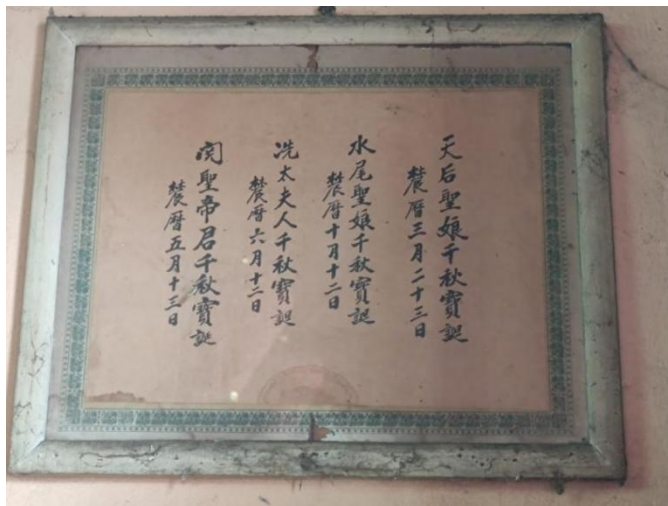 天后聖娘千秋寶誕
農曆三月二十三日
水尾聖娘千秋寶誕
農曆十月十二日
冼太夫人千秋寶誕
農曆六月十二日
関聖帝君千秋寶誕
農曆五月十三日